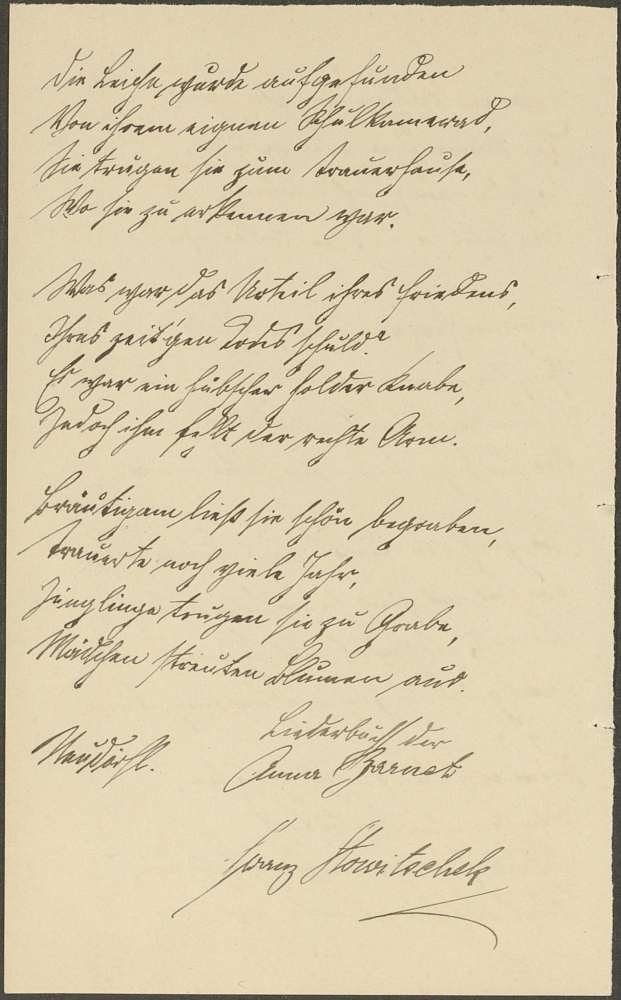 Die Leiche wurde aufgefunden
Von ihrem eignen Schulkamerad,
Sie trugen sie zum Trauerhause,
Wo sie zu erkennen war.
Was war das Urteil ihres Friedens,
Ihres zeit'gen Todes schuld?
Es war ein hübscher holder Knabe,
Jedoch ihm fehlt der rechte Arm.
Bräutigam ließ sie schön begraben,
Trauerte noch viele Jahr,
Jünglinge trugen sie zu Grabe,
Mädchen streuten Blumen aus.
Liederbuch der
Neudörfl.
Anna
Franz Stowitschek